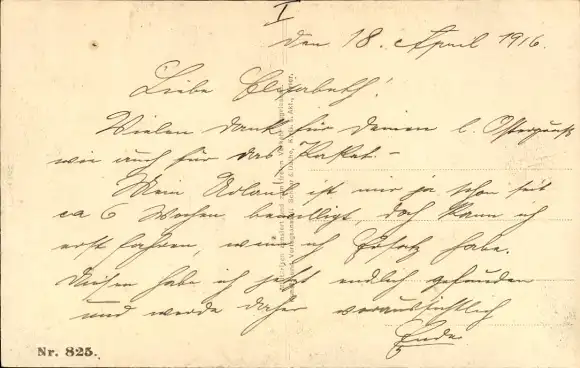 I
den 18. April 1916.
Liebe Elisabeth!
Vielen Dank für Deinen l. Ostergruß
wie auch für das Paket. –
Mein Urlaub ist mir ja schon seit
ca 6 Wochen bewilligt, doch kann ich
erst fahren, wenn ich Ersatz habe.
Diesen habe ich jetzt endlich gefunden
und werde daher voraussichtlich
Ende
Nr. 825.